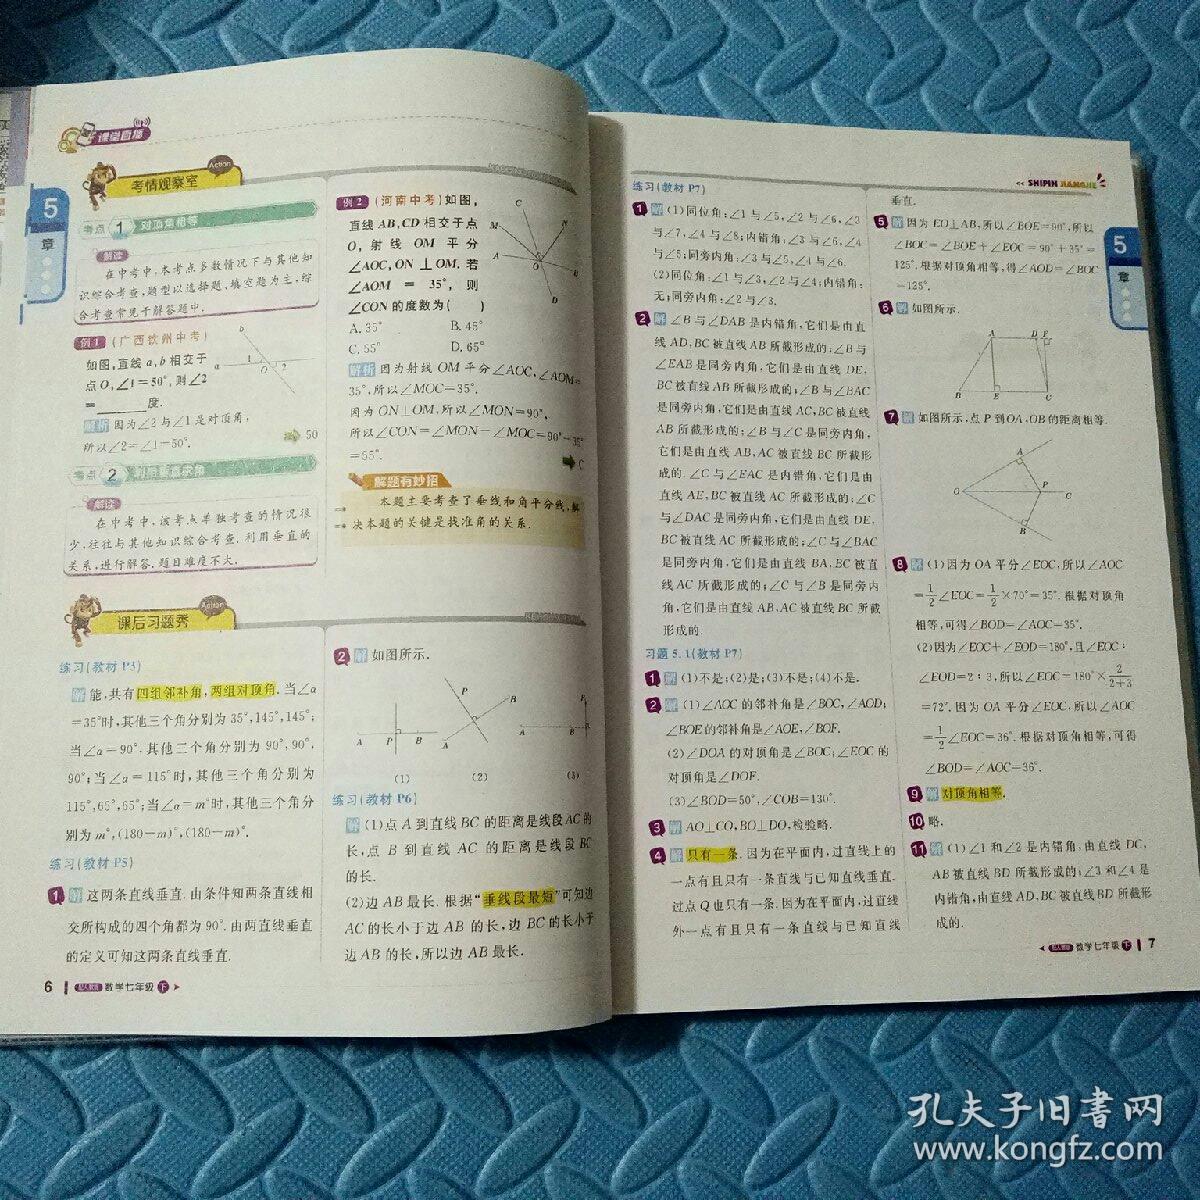 课堂直播
考情观察室
Action
考点 1 对顶角相等
解读
在中考中,本考点多数情况下与其他知
识综合考查,题型以选择题、填空题为主,综
合考查常见于解答题中.
例1 (广西钦州中考)
如图,直线a,b相交于
点O,∠1=50°,则∠2
=______度.
解析 因为∠2与∠1是对顶角,
所以∠2=∠1=50°.
50
考点 2
解读
在中考中,该考点单独考查的情况很
少,往往与其他知识综合考查.利用垂直的
关系,进行解答.题目难度不大.
例2 (河南中考)如图,
直线AB,CD相交于点
O,射线OM平分
∠AOC,ON⊥OM.若
∠AOM=35°,则
∠CON的度数为( )
A.35° B.45°
C.55° D.65°
解析 因为射线OM平分∠AOC,∠AOM=
35°,所以∠MOC=35°.
因为ON⊥OM,所以∠MON=90°,
所以∠CON=∠MON-∠MOC=90°-35°
=55°.
C
解题有妙招
本题主要考查了垂线和角平分线,解
决本题的关键是找准角的关系.
课后习题秀
Action
练习(教材P3)
解 能,共有四组邻补角,两组对顶角.当∠α
=35°时,其他三个角分别为35°,145°,145°;
当∠α=90°.其他三个角分别为90°,90°,
90°;当∠α=115°时,其他三个角分别为
115°,65°,65°;当∠α=m°时,其他三个角分
别为m°,(180-m)°,(180-m)°.
练习(教材P5)
1 解 这两条直线垂直.由条件知两条直线相
交所构成的四个角都为90°.由两直线垂直
的定义可知这两条直线垂直.
2 解 如图所示.
(1) (2) (3)
练习(教材P6)
解 (1)点A到直线BC的距离是线段AC的
长,点B到直线AC的距离是线段BC
的长.
(2)边AB最长.根据“垂线段最短”可知边
AC的长小于边AB的长,边BC的长小于
边AB的长,所以边AB最长.
6 数学七年级 下
SHIPIN JIANGJIE
5
章
练习(教材P7)
1 解 (1)同位角:∠1与∠5,∠2与∠6,∠3
与∠7,∠4与∠8;内错角:∠3与∠6,∠4
与∠5;同旁内角:∠3与∠5,∠4与∠6.
(2)同位角:∠1与∠3,∠2与∠4;内错角:
无;同旁内角:∠2与∠3.
2 解 ∠B与∠DAB是内错角,它们是由直
线AD,BC被直线AB所截形成的;∠B与
∠EAB是同旁内角,它们是由直线DE,
BC被直线AB所截形成的;∠B与∠BAC
是同旁内角,它们是由直线AC,BC被直线
AB所截形成的;∠B与∠C是同旁内角,
它们是由直线AB,AC被直线BC所截形
成的.∠C与∠EAC是内错角,它们是由
直线AE,BC被直线AC所截形成的;∠C
与∠DAC是同旁内角,它们是由直线DE,
BC被直线AC所截形成的;∠C与∠BAC
是同旁内角,它们是由直线BA,BC被直
线AC所截形成的;∠C与∠B是同旁内
角,它们是由直线AB,AC被直线BC所截
形成的.
习题5.1(教材P7)
1 解 (1)不是;(2)是;(3)不是;(4)不是.
2 解 (1)∠AOC的邻补角是∠BOC,∠AOD;
∠BOE的邻补角是∠AOE,∠BOF.
(2)∠DOA的对顶角是∠BOC;∠EOC的
对顶角是∠DOF.
(3)∠BOD=50°,∠COB=130°.
3 解 AO⊥CO,BO⊥DO,检验略.
4 解 只有一条.因为在平面内,过直线上的
一点有且只有一条直线与已知直线垂直.
过点Q也只有一条.因为在平面内,过直线
外一点有且只有一条直线与已知直线
垂直.
5 解 因为EO⊥AB,所以∠BOE=90°,所以
∠BOC=∠BOE+∠EOC=90°+35°=
125°.根据对顶角相等,得∠AOD=∠BOC
=125°.
6 解 如图所示.
7 解 如图所示,点P到OA,OB的距离相等.
8 解 (1)因为OA平分∠EOC,所以∠AOC
=1/2∠EOC=1/2×70°=35°.根据对顶角
相等,可得∠BOD=∠AOC=35°.
(2)因为∠EOC+∠EOD=180°,且∠EOC:
∠EOD=2:3,所以∠EOC=180°×2/(2+3)
=72°.因为OA平分∠EOC,所以∠AOC
=1/2∠EOC=36°.根据对顶角相等,可得
∠BOD=∠AOC=36°.
9 解 对顶角相等.
10 略.
11 解 (1)∠1和∠2是内错角.由直线DC,
AB被直线BD所截形成的;∠3和∠4是
内错角,由直线AD,BC被直线BD所截形
成的.
数学七年级 下 7
5
章
孔夫子旧书网
www.kongfz.com